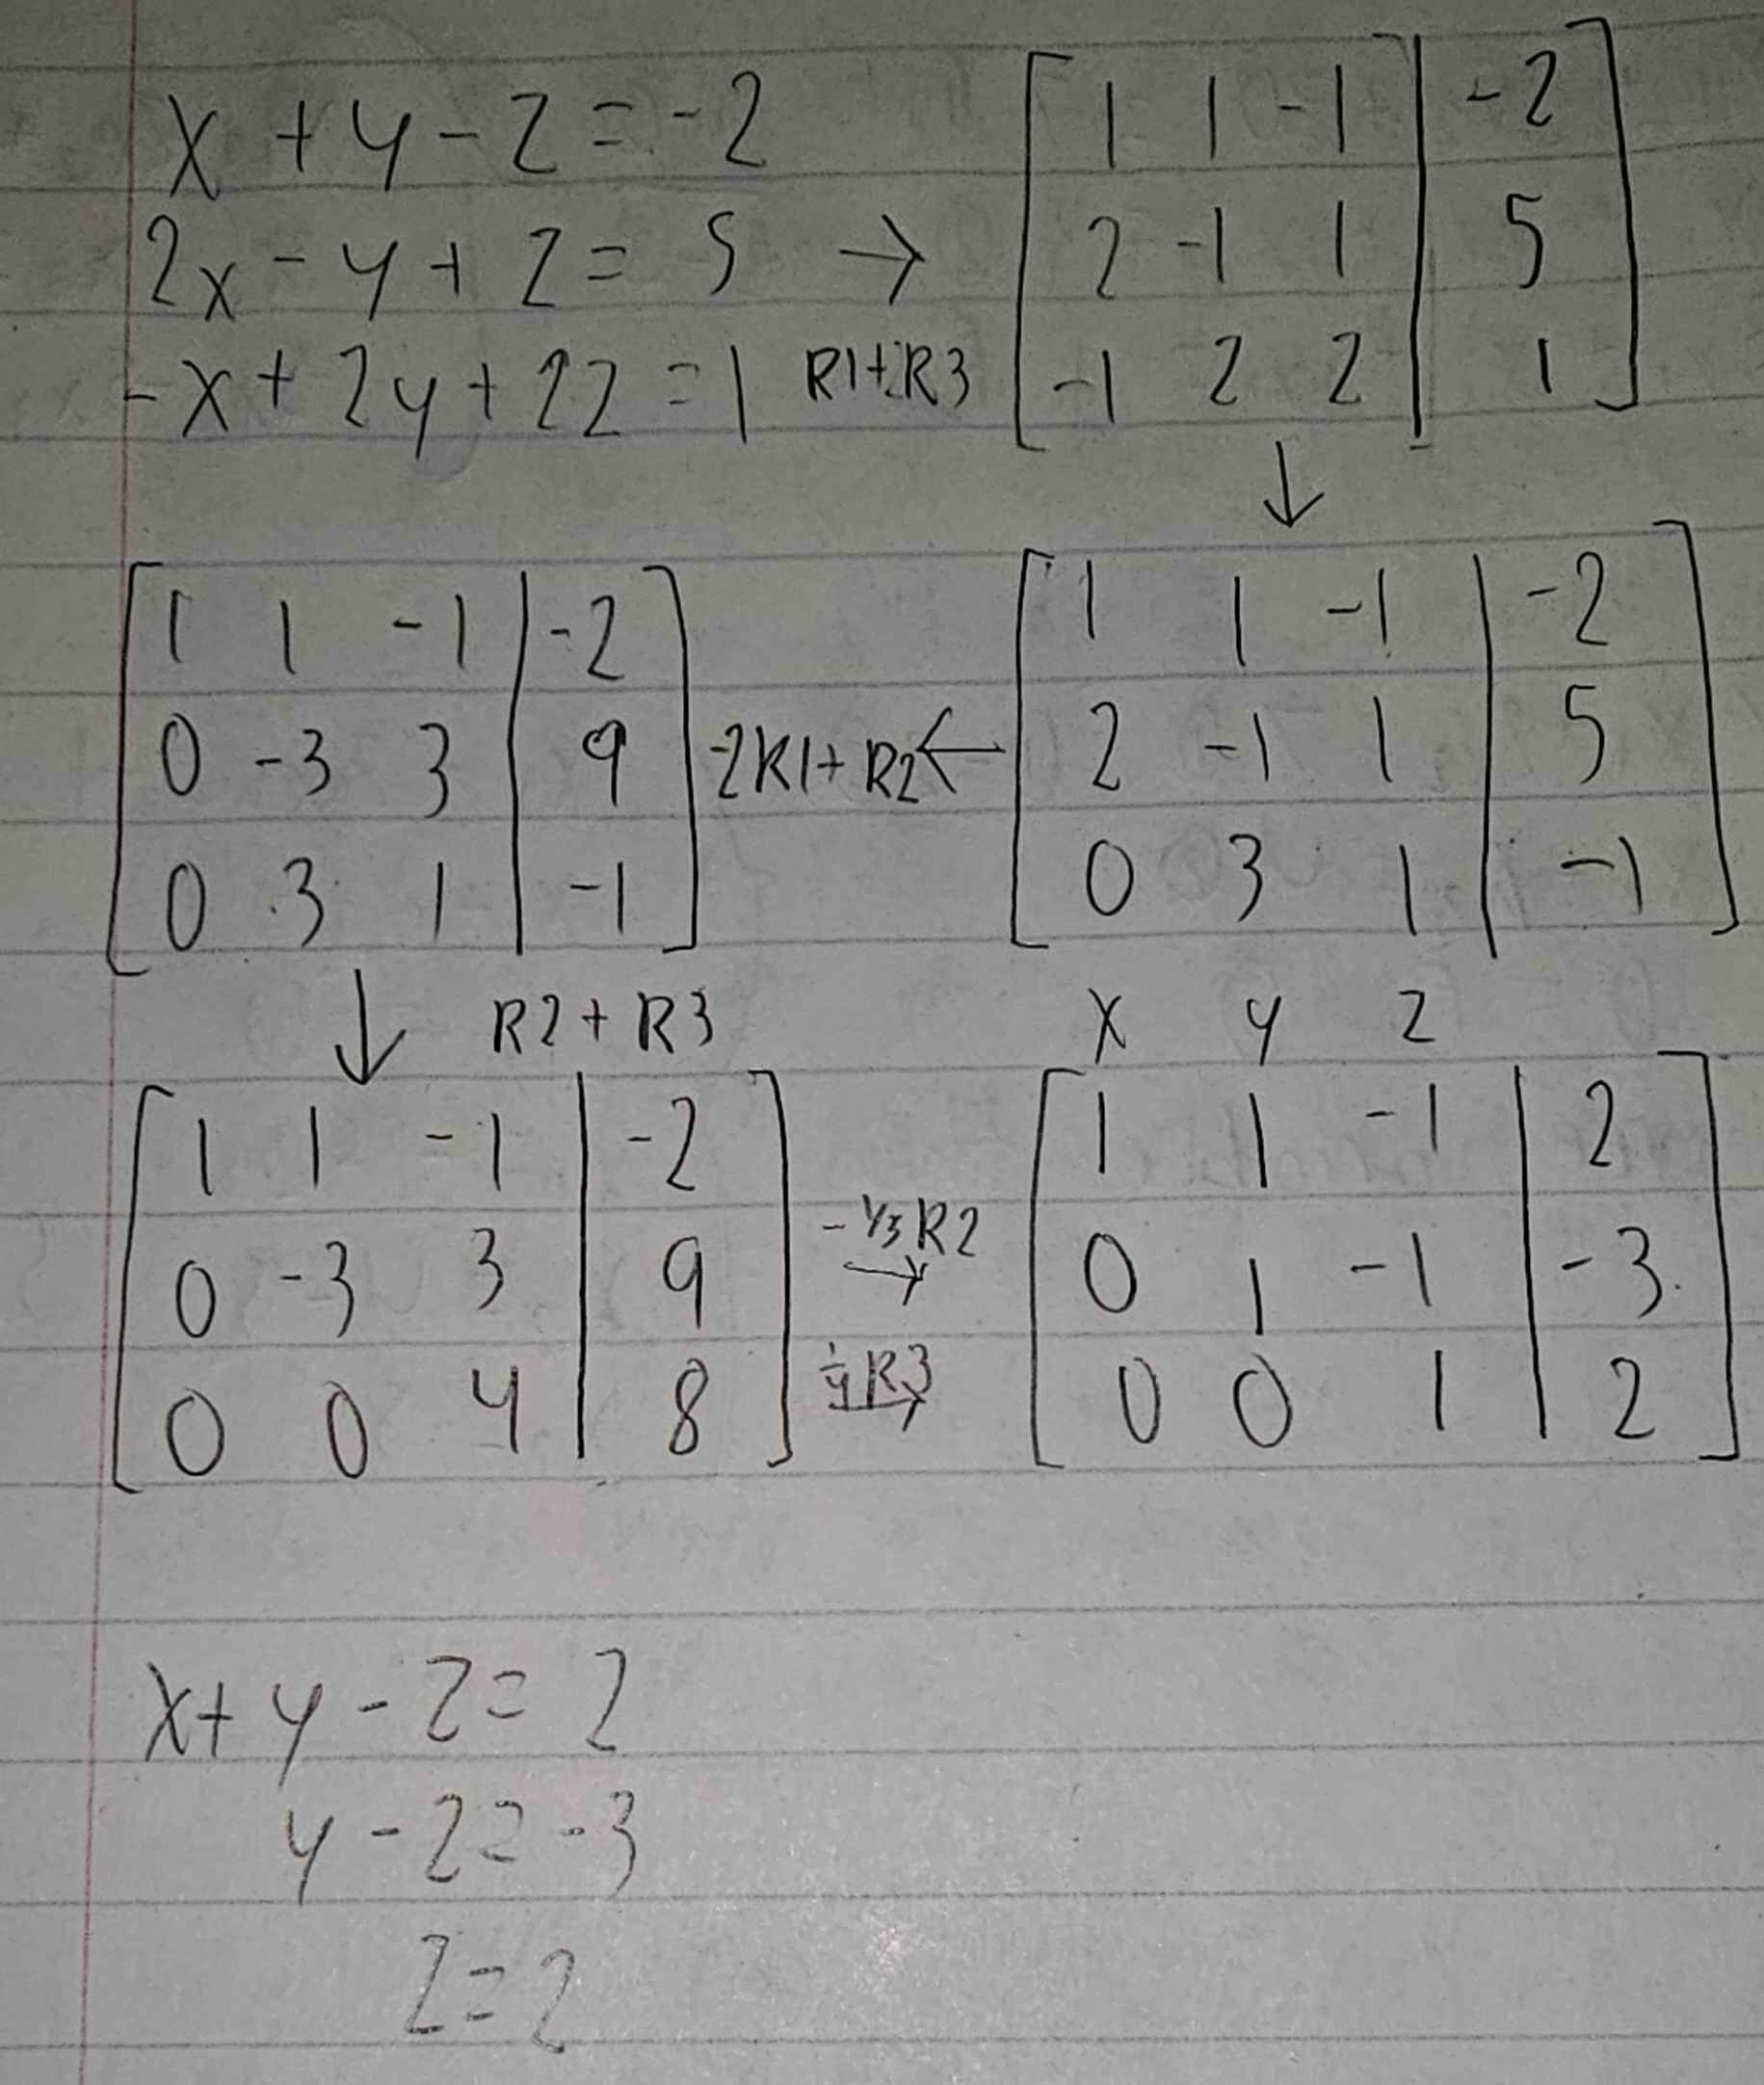 x + y - z = -2
2x - y + z = 5 →
-x + 2y + 2z = 1 R1+R3
[ 1 1 -1 | -2 ]
[ 2 -1 1 | 5 ]
[ -1 2 2 | 1 ]
↓
[ 1 1 -1 | -2 ]
[ 2 -1 1 | 5 ]
[ 0 3 1 | -1 ]
-2R1+R2 ←
[ 1 1 -1 | -2 ]
[ 0 -3 3 | 9 ]
[ 0 3 1 | -1 ]
↓ R2 + R3
[ 1 1 -1 | -2 ]
[ 0 -3 3 | 9 ]
[ 0 0 4 | 8 ]
-1/3 R2 →
1/4 R3 →
x y z
[ 1 1 -1 | 2 ]
[ 0 1 -1 | -3 ]
[ 0 0 1 | 2 ]
x + y - z = 2
y - z = -3
z = 2